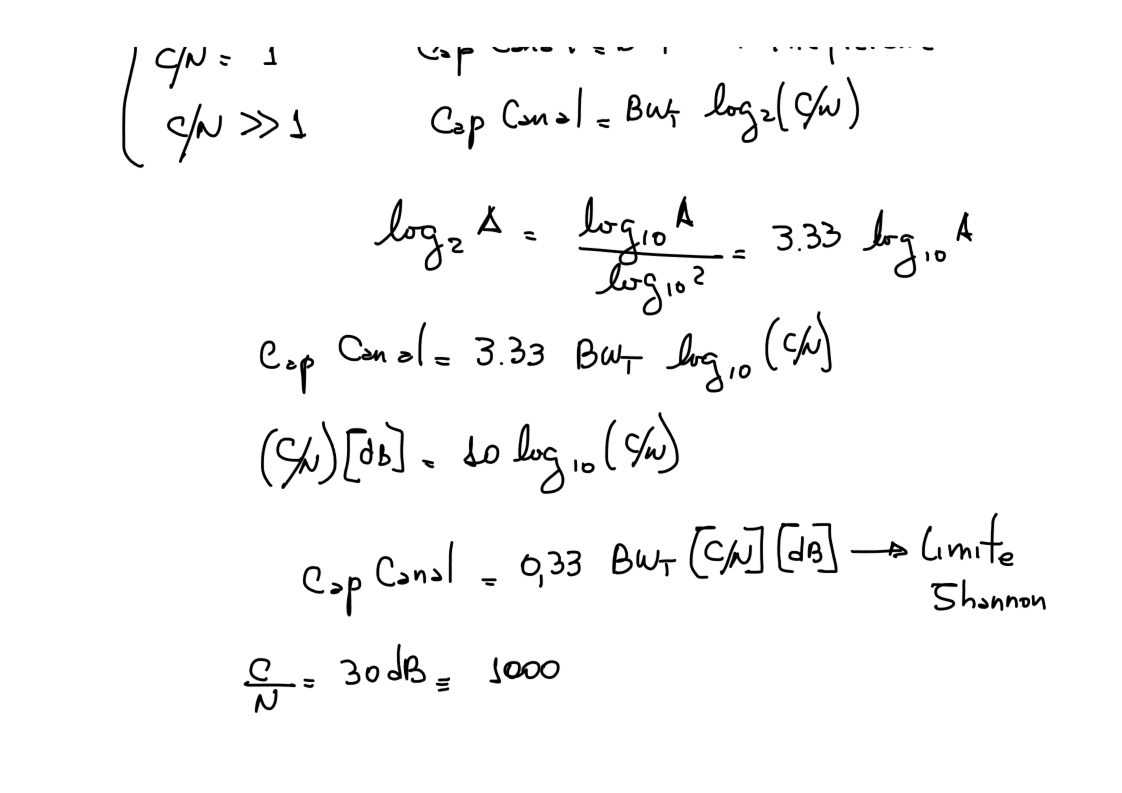 C/N = 1 Cap Canal = B
C/N >> 1 Cap Canal = BW_T log₂(C/N)
log₂ A = log₁₀ A / log₁₀ 2 = 3.33 log₁₀ A
Cap Canal = 3.33 BW_T log₁₀ (C/N)
(C/N)[dB] = 10 log₁₀ (C/N)
Cap Canal = 0,33 BW_T [C/N][dB] → Limite
Shannon
C/N = 30 dB ≡ 1000